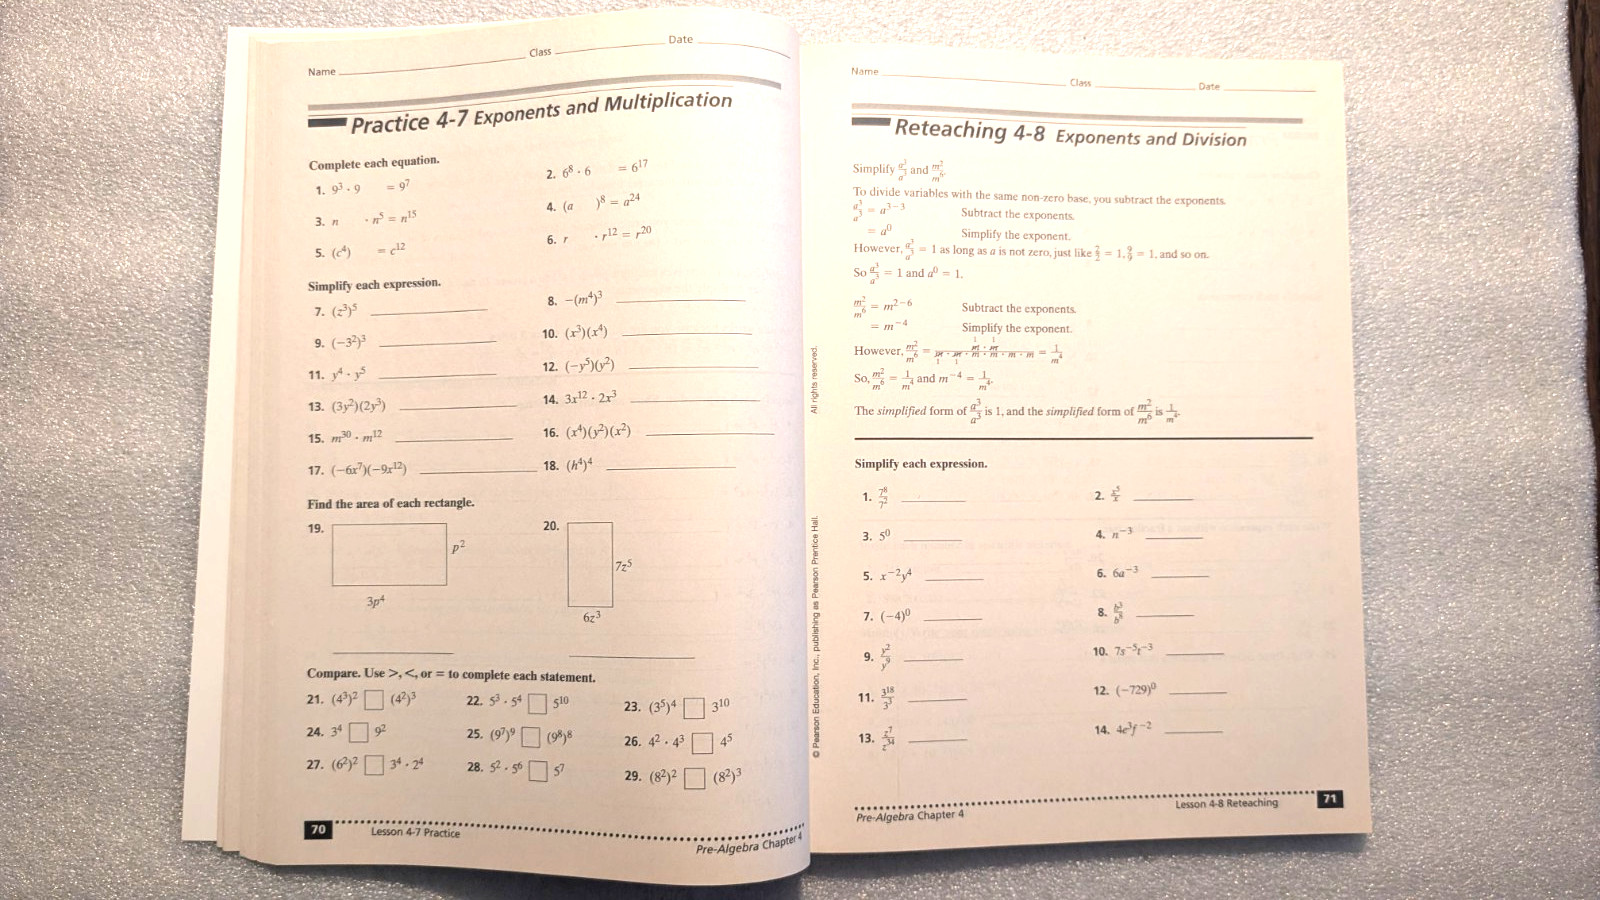 Name
Class
Date
Practice 4-7 Exponents and Multiplication
Complete each equation.
1. 9³ · 9 = 9⁷
2. 6⁸ · 6 = 6¹⁷
3. n · n⁵ = n¹⁵
4. (a )⁸ = a²⁴
5. (c⁴) = c¹²
6. r · r¹² = r²⁰
Simplify each expression.
7. (z³)⁵
8. −(m⁴)³
9. (−3²)³
10. (x³)(x⁴)
11. y⁴ · y⁵
12. (−y⁵)(y²)
13. (3y²)(2y³)
14. 3x¹² · 2x³
15. m³⁰ · m¹²
16. (x⁴)(y²)(x²)
17. (−6x⁷)(−9x¹²)
18. (h⁴)⁴
Find the area of each rectangle.
19.
p²
3p⁴
20.
7z⁵
6z³
Compare. Use >, <, or = to complete each statement.
21. (4³)² □ (4²)³
22. 5³ · 5⁴ □ 5¹⁰
23. (3⁵)⁴ □ 3¹⁰
24. 3⁴ □ 9²
25. (9⁷)⁹ □ (9⁸)⁸
26. 4² · 4³ □ 4⁵
27. (6²)² □ 3⁴ · 2⁴
28. 5² · 5⁶ □ 5⁷
29. (8²)² □ (8²)³
70
Lesson 4-7 Practice
Pre-Algebra Chapter 4
Name
Class
Date
Reteaching 4-8 Exponents and Division
Simplify a³/a³ and m²/m⁶.
To divide variables with the same non-zero base, you subtract the exponents.
a³/a³ = a³⁻³ Subtract the exponents.
= a⁰ Simplify the exponent.
However, a³/a³ = 1 as long as a is not zero, just like 2/2 = 1, 9/9 = 1, and so on.
So a³/a³ = 1 and a⁰ = 1.
m²/m⁶ = m²⁻⁶ Subtract the exponents.
= m⁻⁴ Simplify the exponent.
However, m²/m⁶ = m · m / m · m · m · m · m · m = 1/m⁴
So, m²/m⁶ = 1/m⁴ and m⁻⁴ = 1/m⁴.
The simplified form of a³/a³ is 1, and the simplified form of m²/m⁶ is 1/m⁴.
Simplify each expression.
1. 7⁸/7²
2. x⁵/x
3. 5⁰
4. n⁻³
5. x⁻²y⁴
6. 6a⁻³
7. (−4)⁰
8. b³/b⁸
9. y²/y⁹
10. 7s⁻⁵t⁻³
11. 3¹⁸/3³
12. (−729)⁰
13. z⁷/z³⁴
14. 4e³f⁻²
© Pearson Education, Inc., publishing as Pearson Prentice Hall. All rights reserved.
Pre-Algebra Chapter 4
Lesson 4-8 Reteaching
71